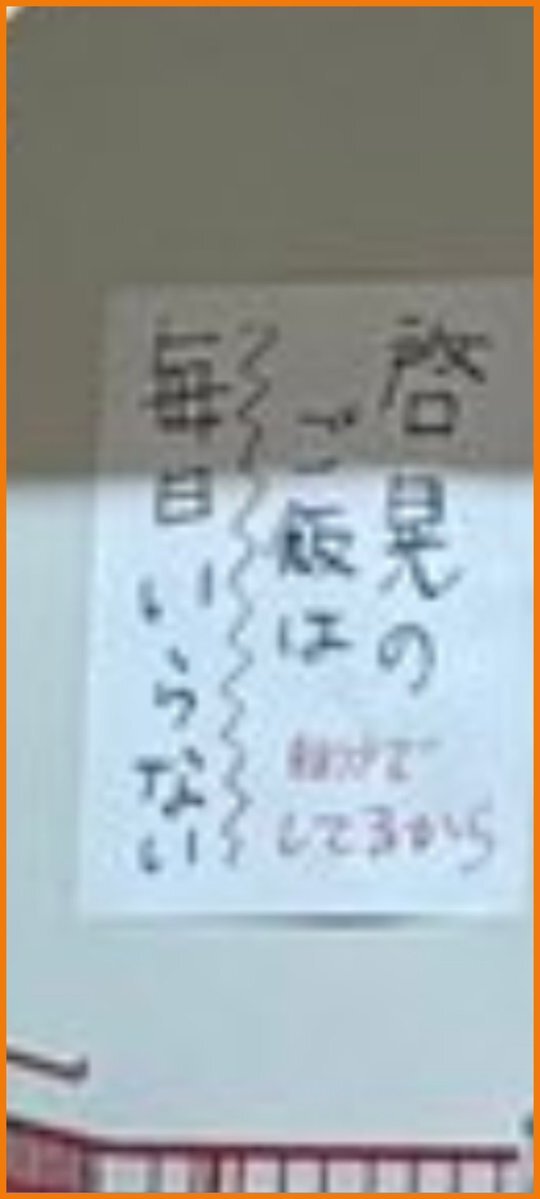 啓晃の
ご飯は
毎日いらない
自分で
してるから